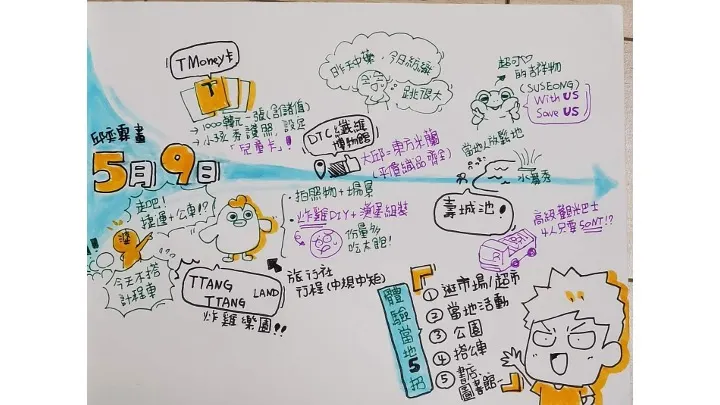 T Money卡
T
→ 1000韓元一張(含儲值)
→ 小孩秀護照、設定
「兒童卡」!
昨天中藥、今日紡織
跳很大
超可♡
的吉祥物
(SUSEONG)
With US
Save US
DTC纖維
博物館
大邱=東方米蘭
(平價織品齊全)
當地人放鬆地
水舞秀
壽城池!
高級觀光巴士
4人只要50NT!?
5月9日
走吧!
捷運+公車!?
婆
今天不搭
計程車
TTANG
TTANG LAND
炸雞樂園!!
・拍照物+場景
・炸雞DIY+漢堡組裝
份量多
吃太飽!
旅行社
行程(中規中矩)
體驗當地5招
① 逛市場/超市
② 當地活動
③ 公園
④ 搭公車
⑤ 書店、
圖書館